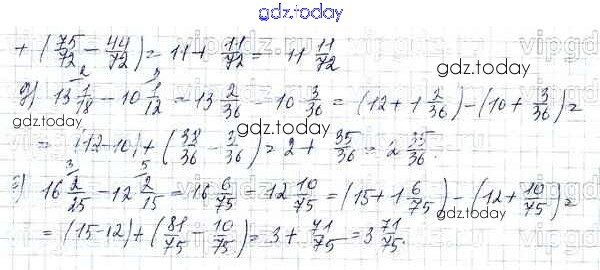 gdz.today
+ (75/72 − 44/72) = 11 + 11/72 = 11 11/72
gdz.today
д) 13 1/18 − 10 1/12 = 13 2/36 − 10 3/36 = (12 + 1 2/36) − (10 + 3/36) =
gdz.today
= (12−10) + (38/36 − 3/36) = 2 + 35/36 = 2 35/36.
16 2/25 − 12 2/15 = 16 6/75 − 12 10/75 = (15 + 1 6/75) − (12 + 10/75) =
gdz.today
= (15−12) + (81/75 − 10/75) = 3 + 71/75 = 3 71/75.
gdz.today